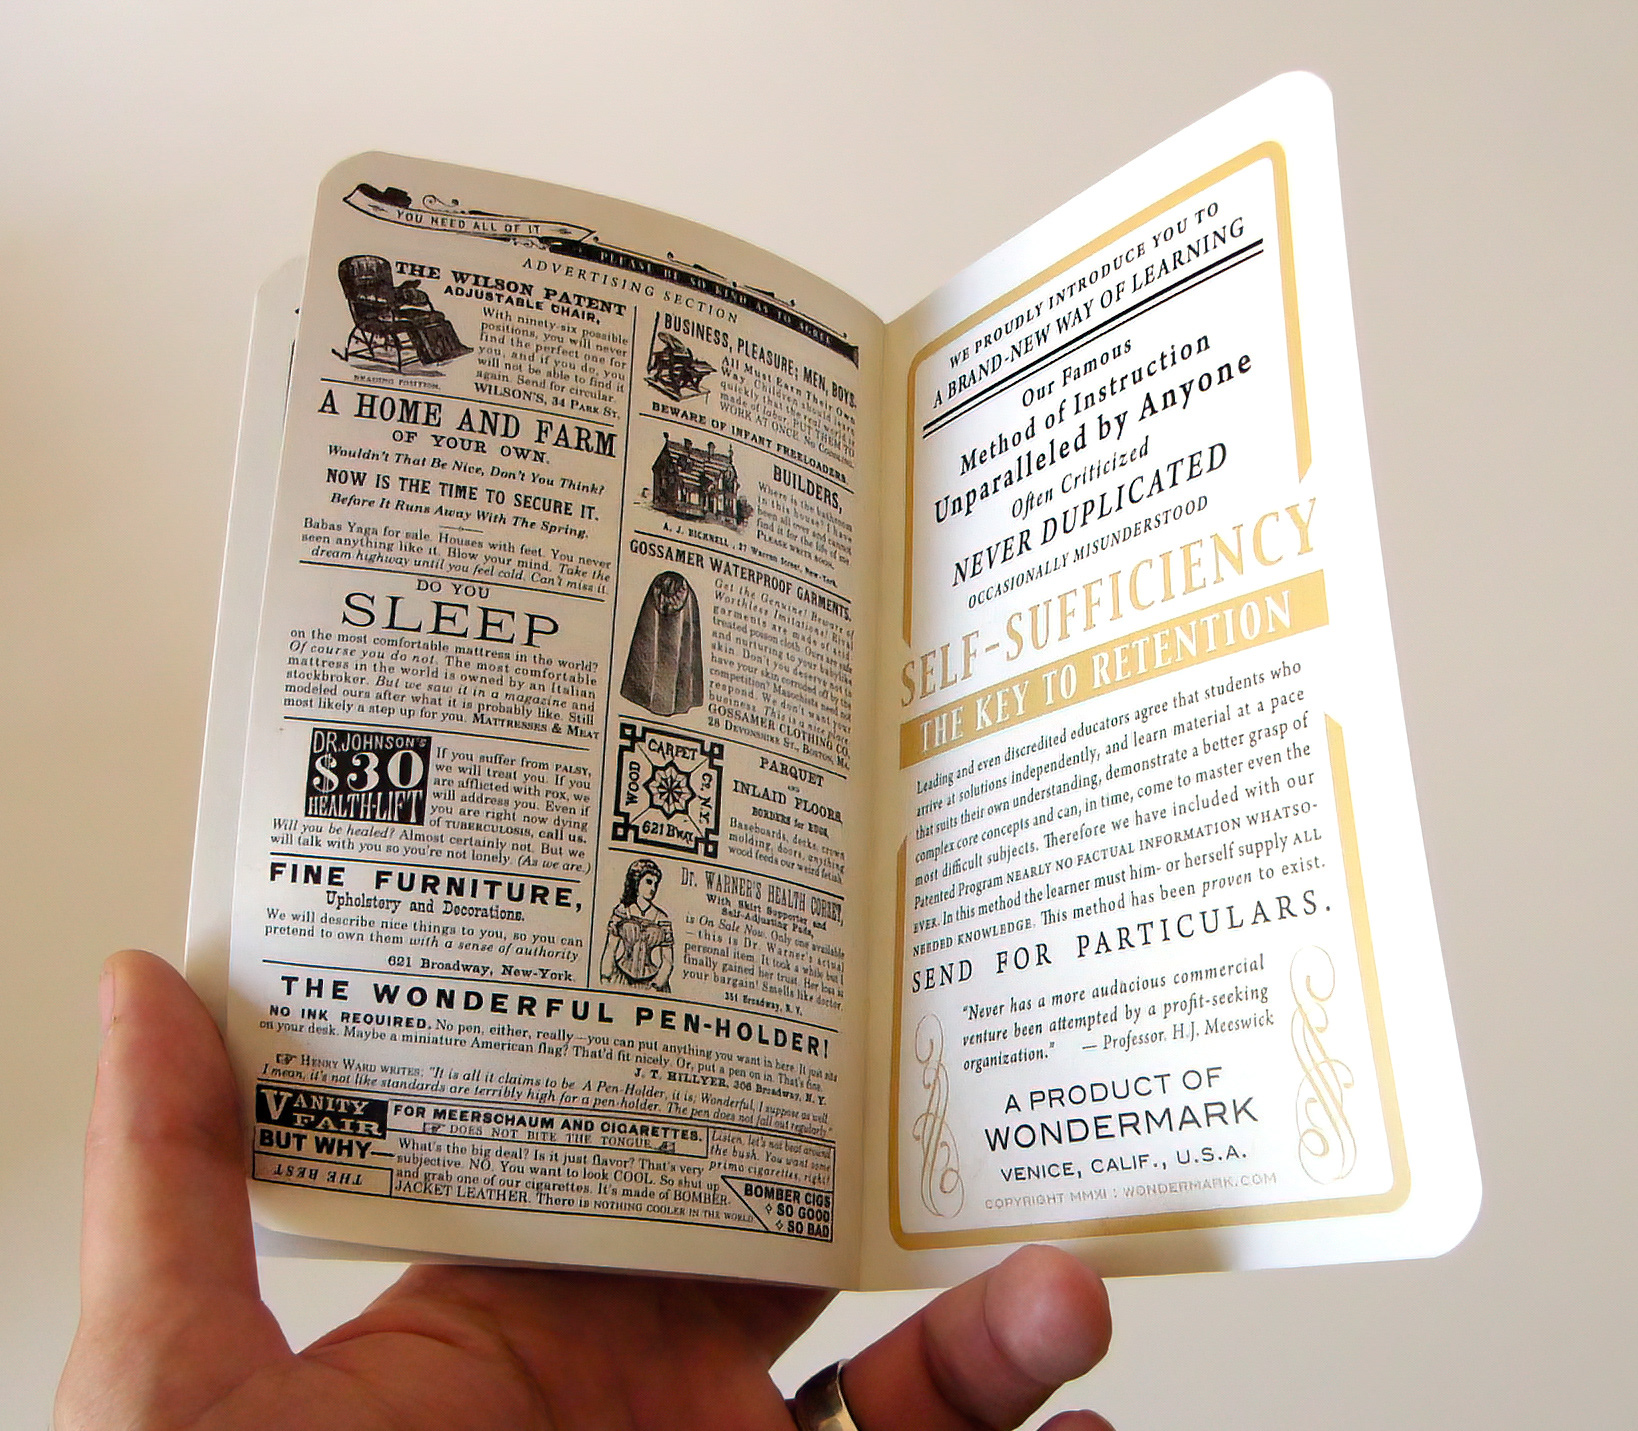 YOU NEED ALL OF IT
PLEASE BE SO KIND AS TO AGREE
ADVERTISING SECTION
THE WILSON PATENT
ADJUSTABLE CHAIR,
With ninety-six possible
positions, you will never
find the perfect one for
you, and if you do, you
will not be able to find it
again. Send for circular.
WILSON'S, 34 PARK ST.
READING POSITION.
A HOME AND FARM
OF YOUR OWN.
Wouldn't That Be Nice, Don't You Think?
NOW IS THE TIME TO SECURE IT.
Before It Runs Away With The Spring.
Babas Yaga for sale. Houses with feet. You never
seen anything like it. Blow your mind. Take the
dream highway until you feel cold. Can't miss it.
DO YOU
SLEEP
on the most comfortable mattress in the world?
Of course you do not. The most comfortable
mattress in the world is owned by an Italian
stockbroker. But we saw it in a magazine and
modeled ours after what it is probably like. Still
most likely a step up for you. MATTRESSES & MEAT
DR. JOHNSON'S
$30
HEALTH-LIFT
If you suffer from PALSY,
we will treat you. If you
are afflicted with POX, we
will address you. Even if
you are right now dying
of TUBERCULOSIS, call us.
Will you be healed? Almost certainly not. But we
will talk with you so you're not lonely. (As we are.)
FINE FURNITURE,
Upholstery and Decorations.
We will describe nice things to you, so you can
pretend to own them with a sense of authority
621 Broadway, New-York.
BUSINESS, PLEASURE; MEN, BOYS.
All Must Earn Their Own
Way. Children should learn
quickly that the real world is
made of labor. PUT THEM TO
WORK AT ONCE.
BEWARE OF INFANT FREELOADERS.
BUILDERS,
Where is the bathroom
in this house? I have
been all over and cannot
find it for the life of me
PLEASE WRITE SOON.
A. J. BICKNELL, 27 Warren Street, New-York.
GOSSAMER WATERPROOF GARMENTS.
Get the Genuine! Beware of
Worthless Imitations! Rival
garments are made of acid
treated poison cloth. Ours are safe
and nurturing to your babylike
skin. Don't you deserve not to
have your skin corroded off by the
competition? Masochists need not
respond. We don't want your
business. This is a nice place.
GOSSAMER CLOTHING CO.
28 DEVONSHIRE ST., BOSTON, MA.
CARPET
WOOD
CO. N.Y.
621 BWAY
PARQUET
AND
INLAID FLOORS,
BORDERS for RUGS,
Baseboards, decks, crown
molding, doors, anything
wood feeds our weird fetish
Dr. WARNER'S HEALTH CORSET,
With Skirt Supporter and
Self-Adjusting Pads,
is On Sale Now. Only one available
—this is Dr. Warner's actual
personal item. It took a while but I
finally gained her trust. Her loss is
your bargain! Smells like doctor.
351 Broadway, N.Y.
THE WONDERFUL PEN-HOLDER!
NO INK REQUIRED. No pen, either, really—you can put anything you want in here. It just sits
on your desk. Maybe a miniature American flag? That'd fit nicely. Or, put a pen on in. That's fine.
J. T. HILLYER, 306 Broadway, N. Y.
HENRY WARD WRITES: "It is all it claims to be. A Pen-Holder, it is; Wonderful, I suppose as well.
I mean, it's not like standards are terribly high for a pen-holder. The pen does not fall out regularly."
VANITY
FAIR
BUT WHY—
THE BEST
FOR MEERSCHAUM AND CIGARETTES.
DOES NOT BITE THE TONGUE
What's the big deal? Is it just flavor? That's very
subjective. NO. You want to look COOL. So shut up
and grab one of our cigarettes. It's made of BOMBER
JACKET LEATHER. There is NOTHING COOLER IN THE WORLD
Listen, let's not beat around
the bush. You want some
primo cigarettes, right?
BOMBER CIGS
SO GOOD
SO BAD
WE PROUDLY INTRODUCE YOU TO
A BRAND-NEW WAY OF LEARNING
Our Famous
Method of Instruction
Unparalleled by Anyone
Often Criticized
NEVER DUPLICATED
OCCASIONALLY MISUNDERSTOOD
SELF-SUFFICIENCY
THE KEY TO RETENTION
Leading and even discredited educators agree that students who
arrive at solutions independently, and learn material at a pace
that suits their own understanding, demonstrate a better grasp of
complex core concepts and can, in time, come to master even the
most difficult subjects. Therefore we have included with our
Patented Program NEARLY NO FACTUAL INFORMATION WHATSO-
EVER. In this method the learner must him- or herself supply ALL
NEEDED KNOWLEDGE. This method has been proven to exist.
SEND FOR PARTICULARS.
"Never has a more audacious commercial
venture been attempted by a profit-seeking
organization." — Professor. H.J. Meeswick
A PRODUCT OF
WONDERMARK
VENICE, CALIF., U.S.A.
COPYRIGHT MMXI : WONDERMARK.COM